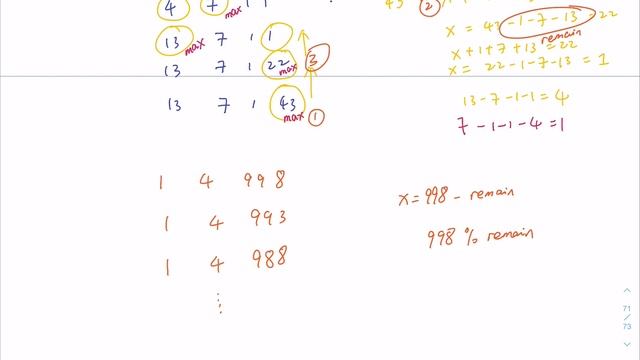 4 7 max 1 1
43 2
13 max 7 1 1
13 7 1 22 max 3
13 7 1 43 max 1
x = 43 -1-7-13 = 22
remain
x+1+7+13 = 22
x = 22-1-7-13 = 1
13-7-1-1=4
7-1-1-4=1
1 4 998
1 4 993
1 4 988
⋮
x = 998 - remain
998 % remain
71
/
73